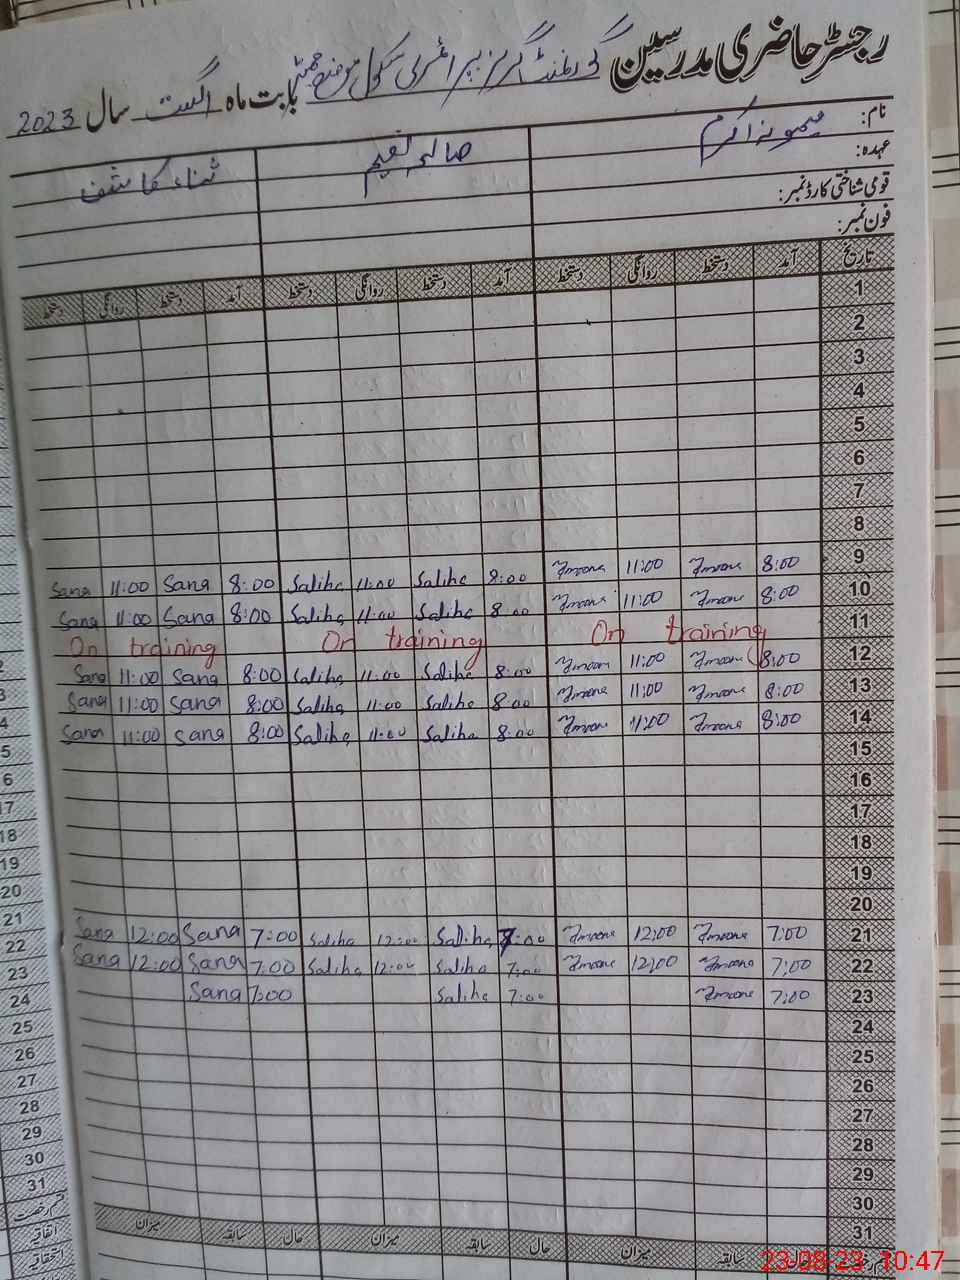 رجسٹر حاضری مدرسین گورنمنٹ گرلز پرائمری سکول موضع
بابت ماہ اگست سال 2023
نام: میمونہ اکرم صالحہ نعیم ثناء کاشف
عہدہ:
قومی شناختی کارڈ نمبر:
فون نمبر:
تاریخ آمد دستخط روانگی دستخط آمد دستخط روانگی دستخط آمد دستخط روانگی دستخط
1
2
3
4
5
6
7
8
Sana 11:00 Sana 8:00 Saliha 11:00 Saliha 8:00 11:00 8:00 9
Sana 11:00 Sana 8:00 Saliha 11:00 Saliha 8:00 11:00 8:00 10
On training On training On training 11
Sana 11:00 Sana 8:00 Saliha 11:00 Saliha 8:00 11:00 8:00 12
Sana 11:00 Sana 8:00 Saliha 11:00 Saliha 8:00 11:00 8:00 13
Sana 11:00 Sana 8:00 Saliha 11:00 Saliha 8:00 11:00 8:00 14
15
16
17
18
19
20
Sana 12:00 Sana 7:00 Saliha 12:00 Saliha 7:00 12:00 7:00 21
Sana 12:00 Sana 7:00 Saliha 12:00 Saliha 7:00 12:00 7:00 22
Sana 7:00 Saliha 7:00 7:00 23
24
25
26
27
28
29
30
31
سابقہ میزان حال سابقہ میزان حال سابقہ میزان
21
22
23
24
25
26
27
28
29
30
31
قسم رخصت
اتفاقیہ
استحقاقیہ
23-08-23 10:47